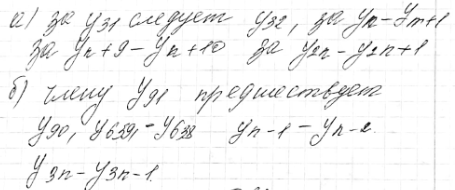 а) за y₃₁ следует y₃₂, за yₙ - yₙ₊₁
за yₙ₊₉ - yₙ₊₁₀ за y₂ₙ - y₂ₙ₊₁
б) члену y₉₁ предшествует
y₉₀, y₆₃₉ - y₆₃₈ yₙ₋₁ - yₙ₋₂
y₃ₙ - y₃ₙ₋₁.